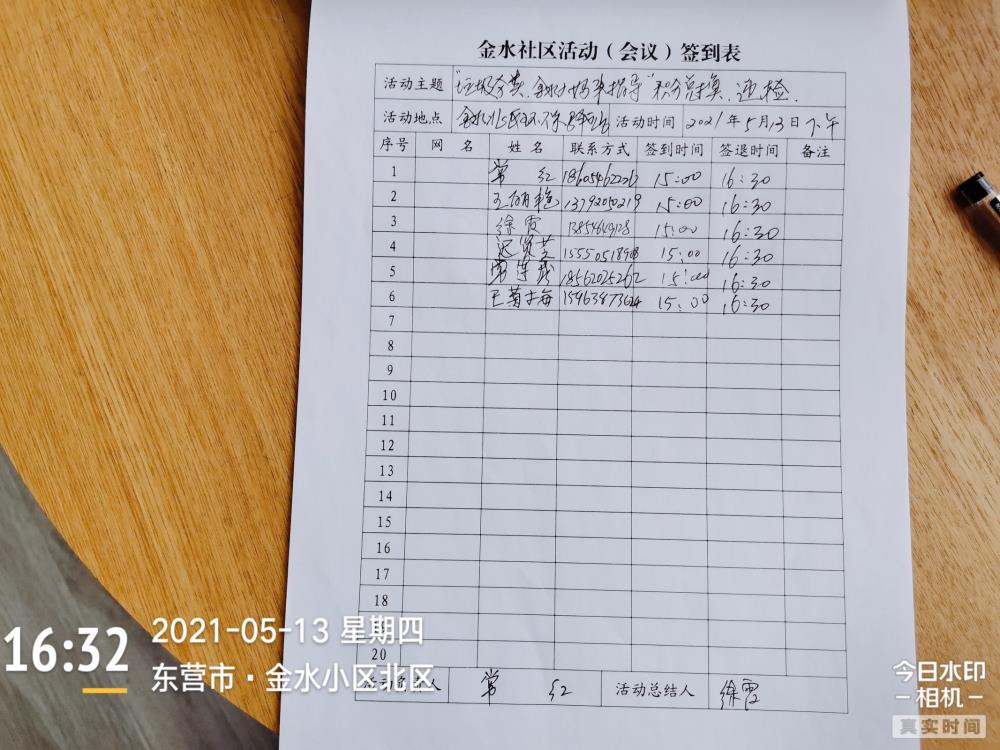 金水社区活动（会议）签到表
活动主题 "垃圾分类、金水小奶奶指导"积分兑换、巡检.
活动地点 活动时间 2021年5月13日下午
序号 网 名 姓 名 联系方式 签到时间 签退时间 备注
1 常 红 15:00 16:30
2 13792050219 15:00 16:30
3 徐霞 15:00 16:30
4 15:00 16:30
5 18562025262 15:00 16:30
6 王菊梅 15:00 16:30
7
8
9
10
11
12
13
14
15
16
17
18
20
常 红 活动总结人 徐霞
16:32
2021-05-13 星期四
东营市·金水小区北区
今日水印
相机
真实时间